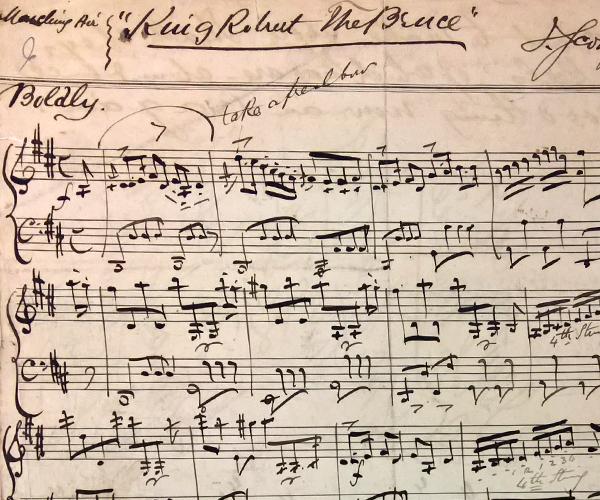 Marching Air "King Robert The Bruce" J. Sco
Boldly. take a full bow
f
4th Stri
f
1 2 3 4
4th String